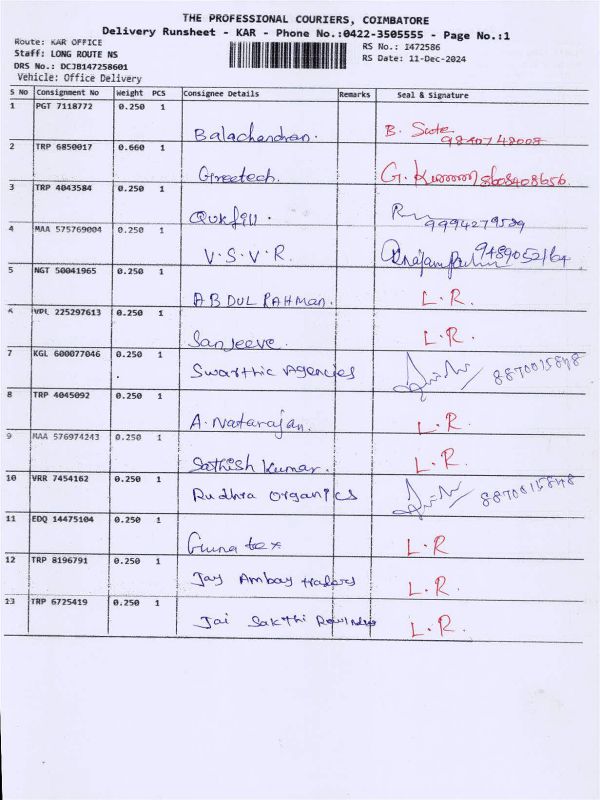 THE PROFESSIONAL COURIERS, COIMBATORE
Delivery Runsheet - KAR - Phone No.:0422-3505555 - Page No.:1
Route: KAR OFFICE
Staff: LONG ROUTE NS
DRS No.: DCJB147258601
Vehicle: Office Delivery
RS No.: I472586
RS Date: 11-Dec-2024
S No Consignment No Weight PCS Consignee Details Remarks Seal & Signature
1 PGT 7118772 0.250 1 Balachandran. B.
2 TRP 6850017 0.660 1 Greetech. G. 8608408656
3 TRP 4043584 0.250 1 9994279529
4 MAA 575769004 0.250 1 V.S.V.R. 9489052164
5 NGT 50041965 0.250 1 ABDUL RAHMAN. L.R.
6 VPL 225297613 0.250 1 Sanjeeve. L.R.
7 KGL 600077046 0.250 1 Swarthic Agencies 8870015848
8 TRP 4045092 0.250 1 A. Natarajan. L.R.
9 MAA 576974243 0.250 1 Sathish Kumar. L.R.
10 VRR 7454162 0.250 1 Rudhra Organics 8870015848
11 EDQ 14475104 0.250 1 Guna tex L.R
12 TRP 8196791 0.250 1 Jay Ambay traders L.R.
13 TRP 6725419 0.250 1 Jai Sakthi L.R.